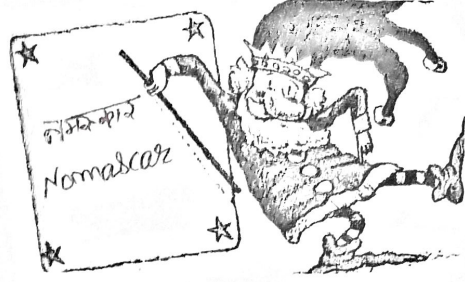 नमस्कार
Nomascar